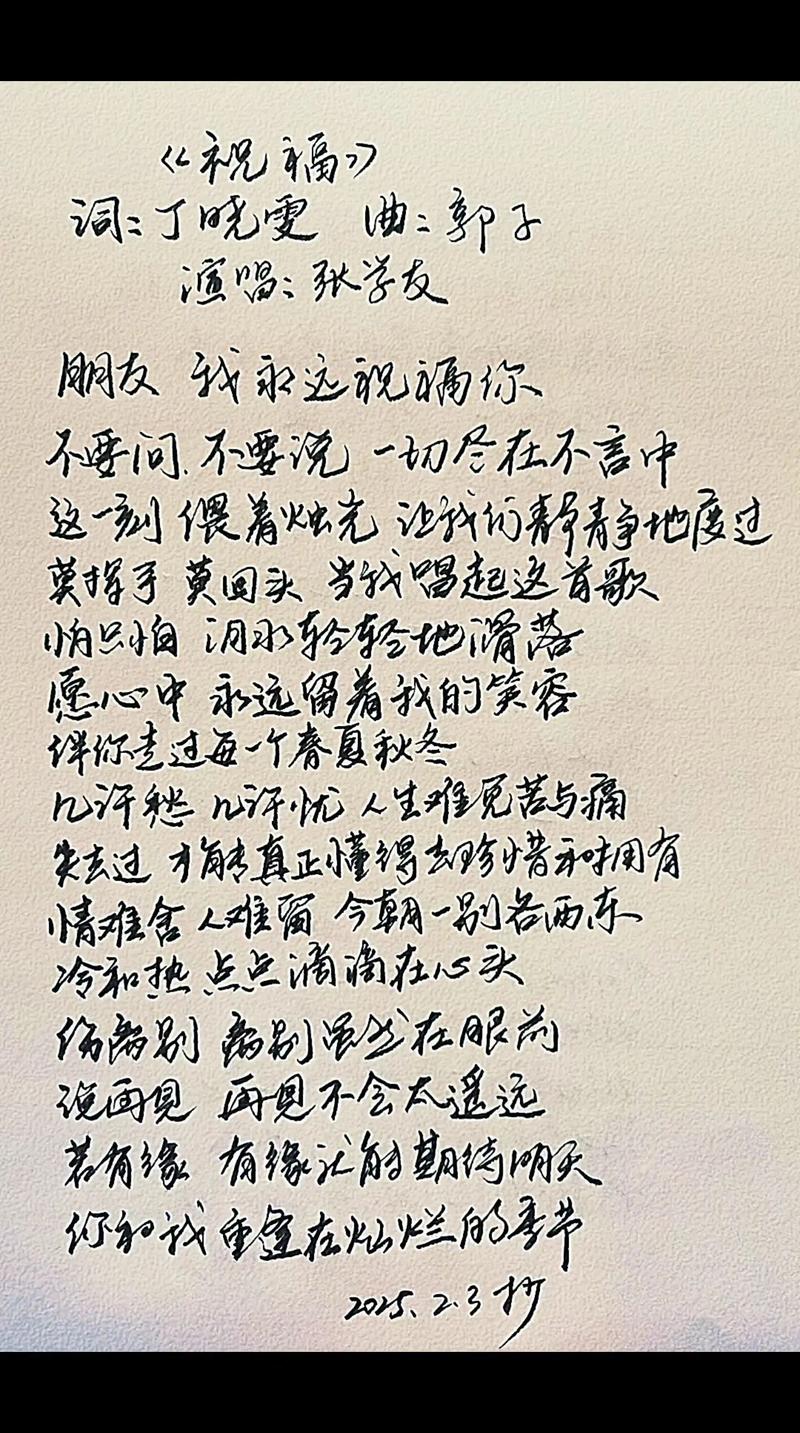 《祝福》
词：丁晓雯 曲：郭子
演唱：张学友
朋友 我永远祝福你
不要问、不要说 一切尽在不言中
这一刻 偎着烛光 让我们静静地度过
莫挥手 莫回头 当我唱起这首歌
怕只怕 泪水轻轻地滑落
愿心中 永远留着我的笑容
伴你走过每一个春夏秋冬
几许愁 几许忧 人生难免苦与痛
失去过 才能真正懂得去珍惜和拥有
情难舍 人难留 今朝一别各西东
冷和热 点点滴滴在心头
伤离别 离别虽然在眼前
说再见 再见不会太遥远
若有缘 有缘就能期待明天
你和我 重逢在灿烂的季节
2025.2.3抄